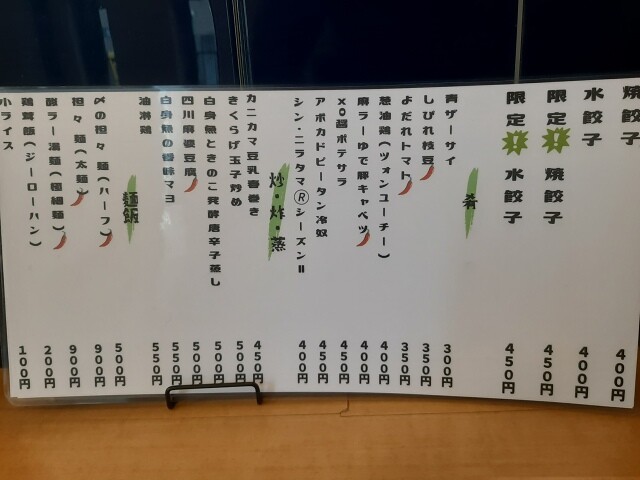 焼餃子 400円
水餃子 400円
限定! 焼餃子 450円
限定! 水餃子 450円
肴
青ザーサイ 300円
しびれ枝豆 350円
よだれトマト 350円
葱油鶏(ツォンユーチー) 400円
麻ラーゆで豚キャベツ 400円
XO醤ポテサラ 450円
アボカドピータン冷奴 450円
シン・ニラタマⓇシーズンⅡ 400円
炒・炸・蒸
カニカマ豆乳春巻き 450円
きくらげ玉子炒め 500円
白身魚ときのこ発酵唐辛子蒸し 500円
四川麻婆豆腐 500円
白身魚の香酢マヨ 550円
油淋鶏 550円
麺飯
〆の担々麺(ハーフ) 500円
担々麺(太麺) 900円
酸ラー湯麺(極細麺) 900円
鶏茸飯(ジーローハン) 200円
小ライス 100円